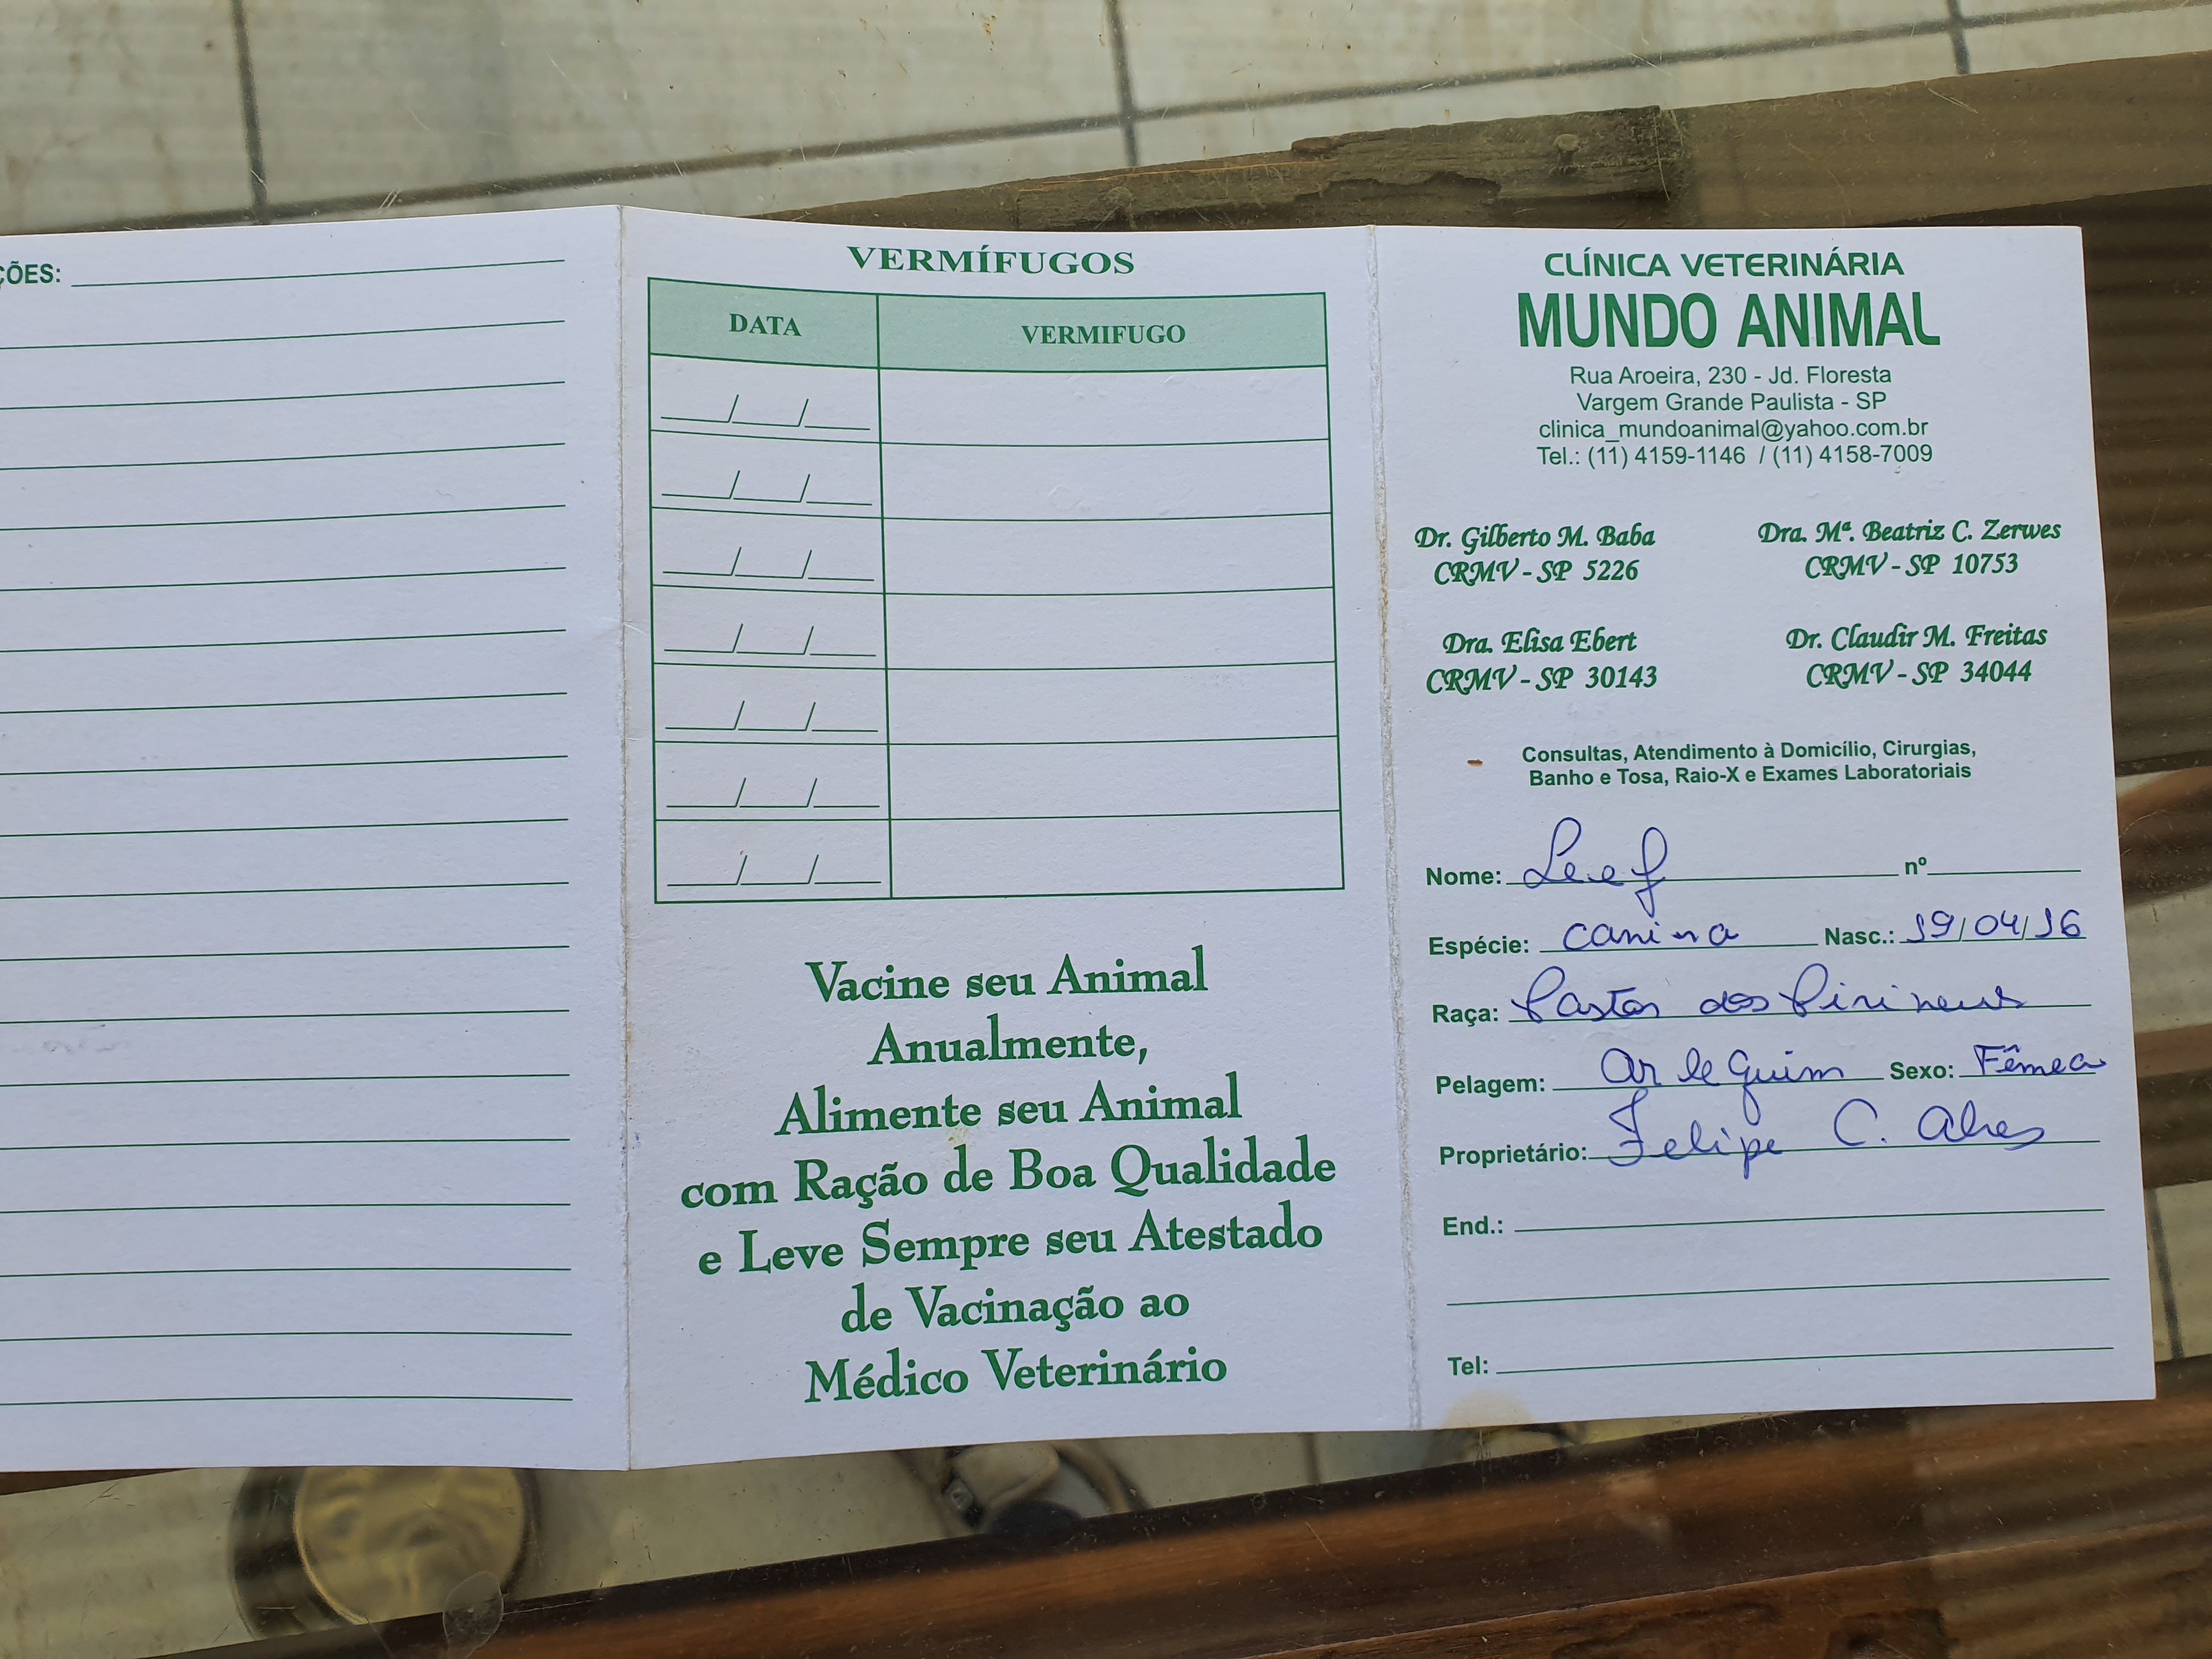 ÇÕES:
VERMÍFUGOS
DATA VERMIFUGO
___/___/___
___/___/___
___/___/___
___/___/___
___/___/___
___/___/___
___/___/___
Vacine seu Animal
Anualmente,
Alimente seu Animal
com Ração de Boa Qualidade
e Leve Sempre seu Atestado
de Vacinação ao
Médico Veterinário
CLÍNICA VETERINÁRIA
MUNDO ANIMAL
Rua Aroeira, 230 - Jd. Floresta
Vargem Grande Paulista - SP
clinica_mundoanimal@yahoo.com.br
Tel.: (11) 4159-1146 / (11) 4158-7009
Dr. Gilberto M. Baba Dra. Mª. Beatriz C. Zerwes
CRMV - SP 5226 CRMV - SP 10753
Dra. Elisa Ebert Dr. Claudir M. Freitas
CRMV - SP 30143 CRMV - SP 34044
Consultas, Atendimento à Domicílio, Cirurgias,
Banho e Tosa, Raio-X e Exames Laboratoriais
Nome: Leef nº
Espécie: canina Nasc.: 19/04/16
Raça: Pastor dos Pirineus
Pelagem: Arlequim Sexo: Fêmea
Proprietário: Felipe C. Alves
End.:
Tel: